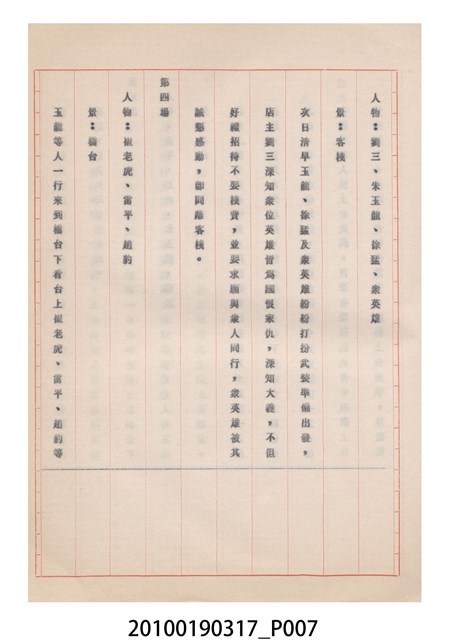 人物：劉三、朱玉龍、徐猛、衆英雄
景：客棧
次日清早玉龍、徐猛及衆英雄紛紛打扮武裝準備出發，
店主劉三深知衆位英雄皆爲國恨家仇，深知大義，不但
好禮招待不要棧費，並要求願與衆人同行，衆英雄被其
誠懇感動，即同離客棧。
第四場
人物：崔老虎、雷平、趙豹
景：擂台
玉龍等人一行來到擂台下看台上崔老虎、雷平、趙豹等
20100190317_P007